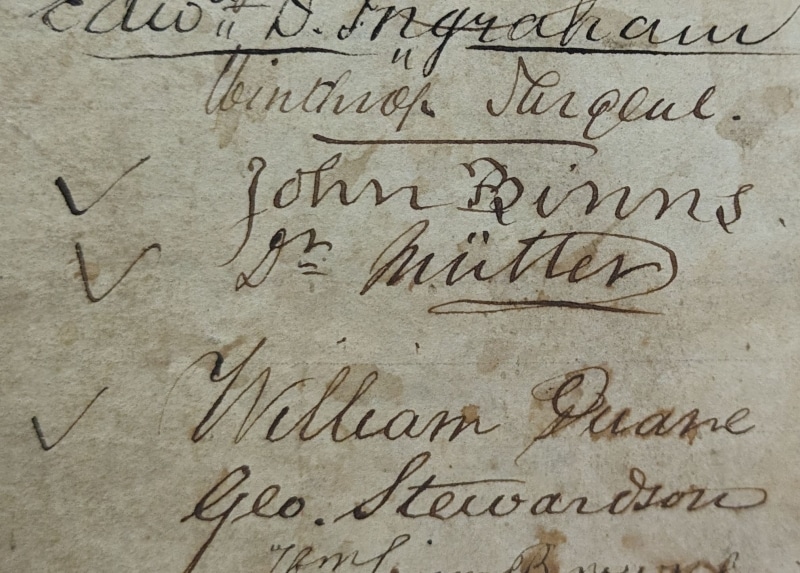 Edwd. D. Ingraham
Winthrop Sargent.
John Binns.
Dr Mütter
William Duane
Geo. Stewardson